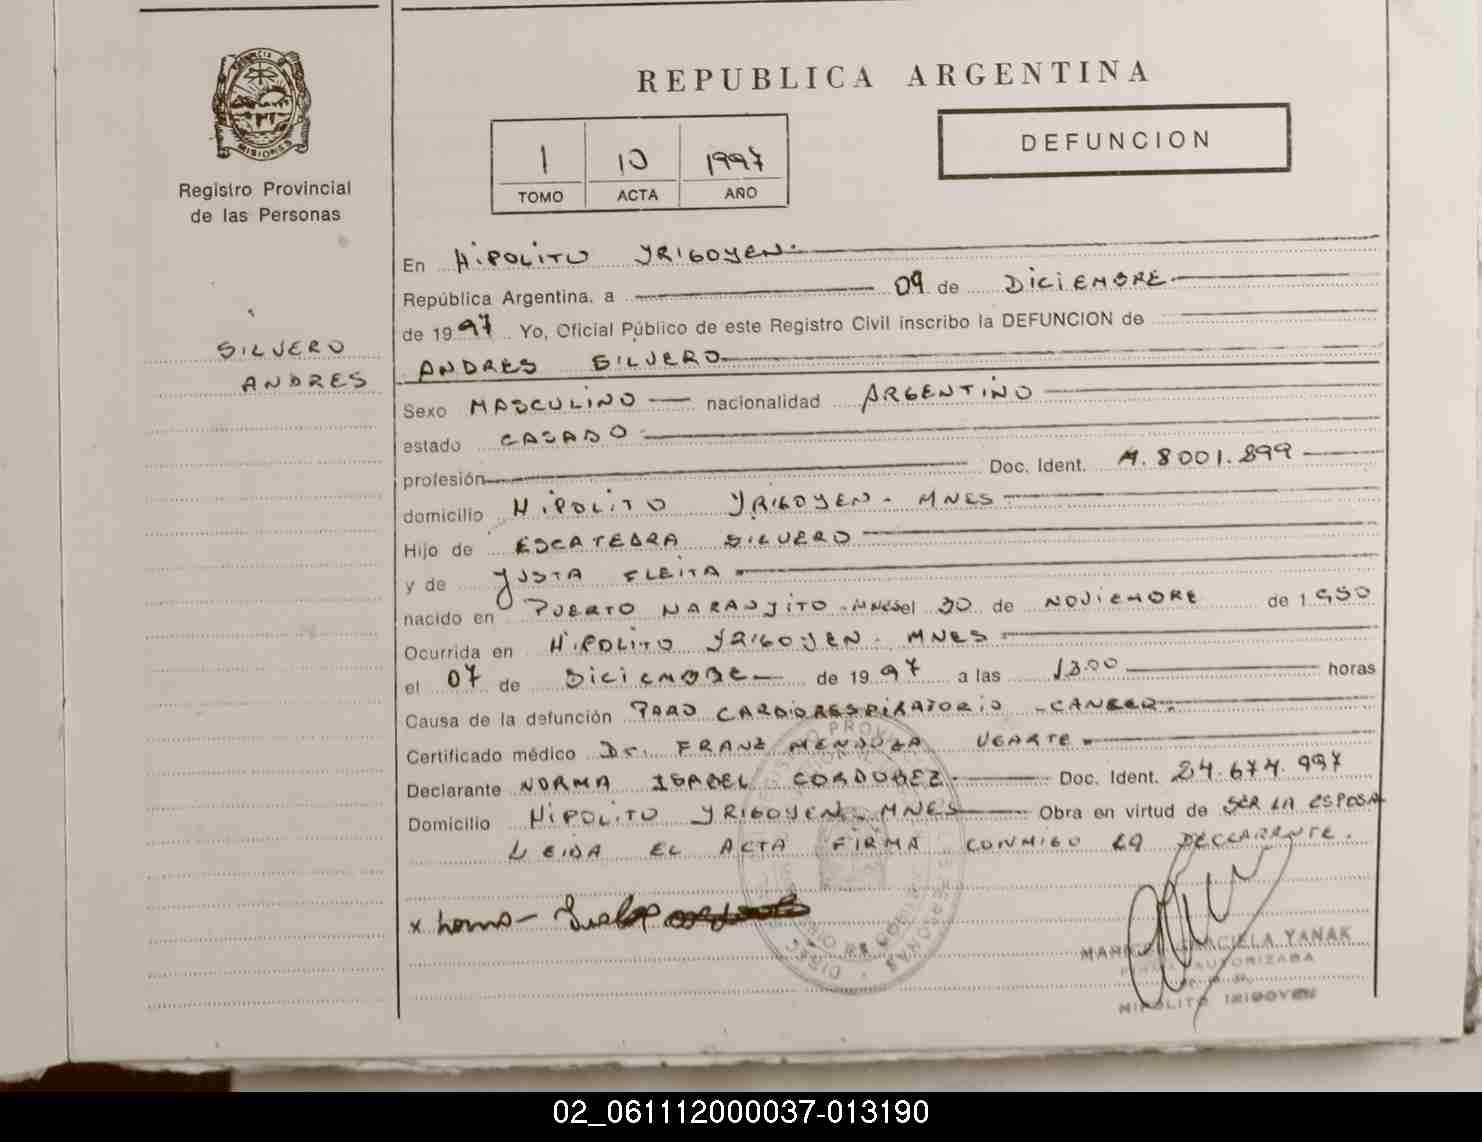 PROVINCIA DE
MISIONES
Registro Provincial
de las Personas
SILVERO
ANDRES
REPUBLICA ARGENTINA
DEFUNCION
1 10 1997
TOMO ACTA AÑO
En HIPOLITO YRIGOYEN.
República Argentina, a 09 de DICIEMBRE
de 1997 Yo, Oficial Público de este Registro Civil inscribo la DEFUNCION de
ANDRES SILVERO
Sexo MASCULINO nacionalidad ARGENTINO
estado CASADO
profesión Doc. Ident. M. 8001.899
domicilio HIPOLITO YRIGOYEN - MNES
Hijo de ESCATEDRA SILVERO
y de YUSTA FLEITA
nacido en PUERTO NARANJITO - MNES el 30 de NOVIEMBRE de 1950
Ocurrida en HIPOLITO YRIGOYEN - MNES
el 07 de DICIEMBRE de 1997 a las 13.00 horas
Causa de la defunción PARO CARDIORESPIRATORIO - CANCER.
Certificado médico Dr. FRANZ MENDOZA UGARTE
Declarante NORMA ISABEL CORDOBEZ. Doc. Ident. 24.674.997
Domicilio HIPOLITO YRIGOYEN - MNES Obra en virtud de SER LA ESPOSA
LEIDA EL ACTA FIRMA CONMIGO LA DECLARANTE.
GRACIELA YANAK
AUTORIZADA
HIPOLITO IRIGOYEN
02_061112000037-013190